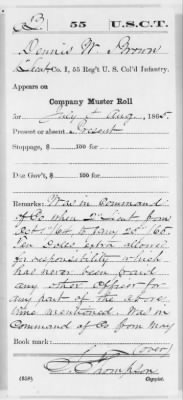 B | 55 | U.S.C.T.
Dennis W. Brown
Lieut, Co. I, 55 Reg't U. S. Col'd Infantry.
Appears on
Company Muster Roll
for July & Aug, 1865.
Present or absent Present
Stoppage, $ 100 for
Due Gov't, $ 100 for
Remarks: Was in Command
of Co when 2" Lieut from
Oct 1" 64 to Jany 25" 65.
Ten Dolls extra allowed
for responsibility which
has never been paid
any other Officer for
any part of the above
time mentioned. Was in
Command of Co from May
Book mark:
(over)
Thompson
(358) Copyist.